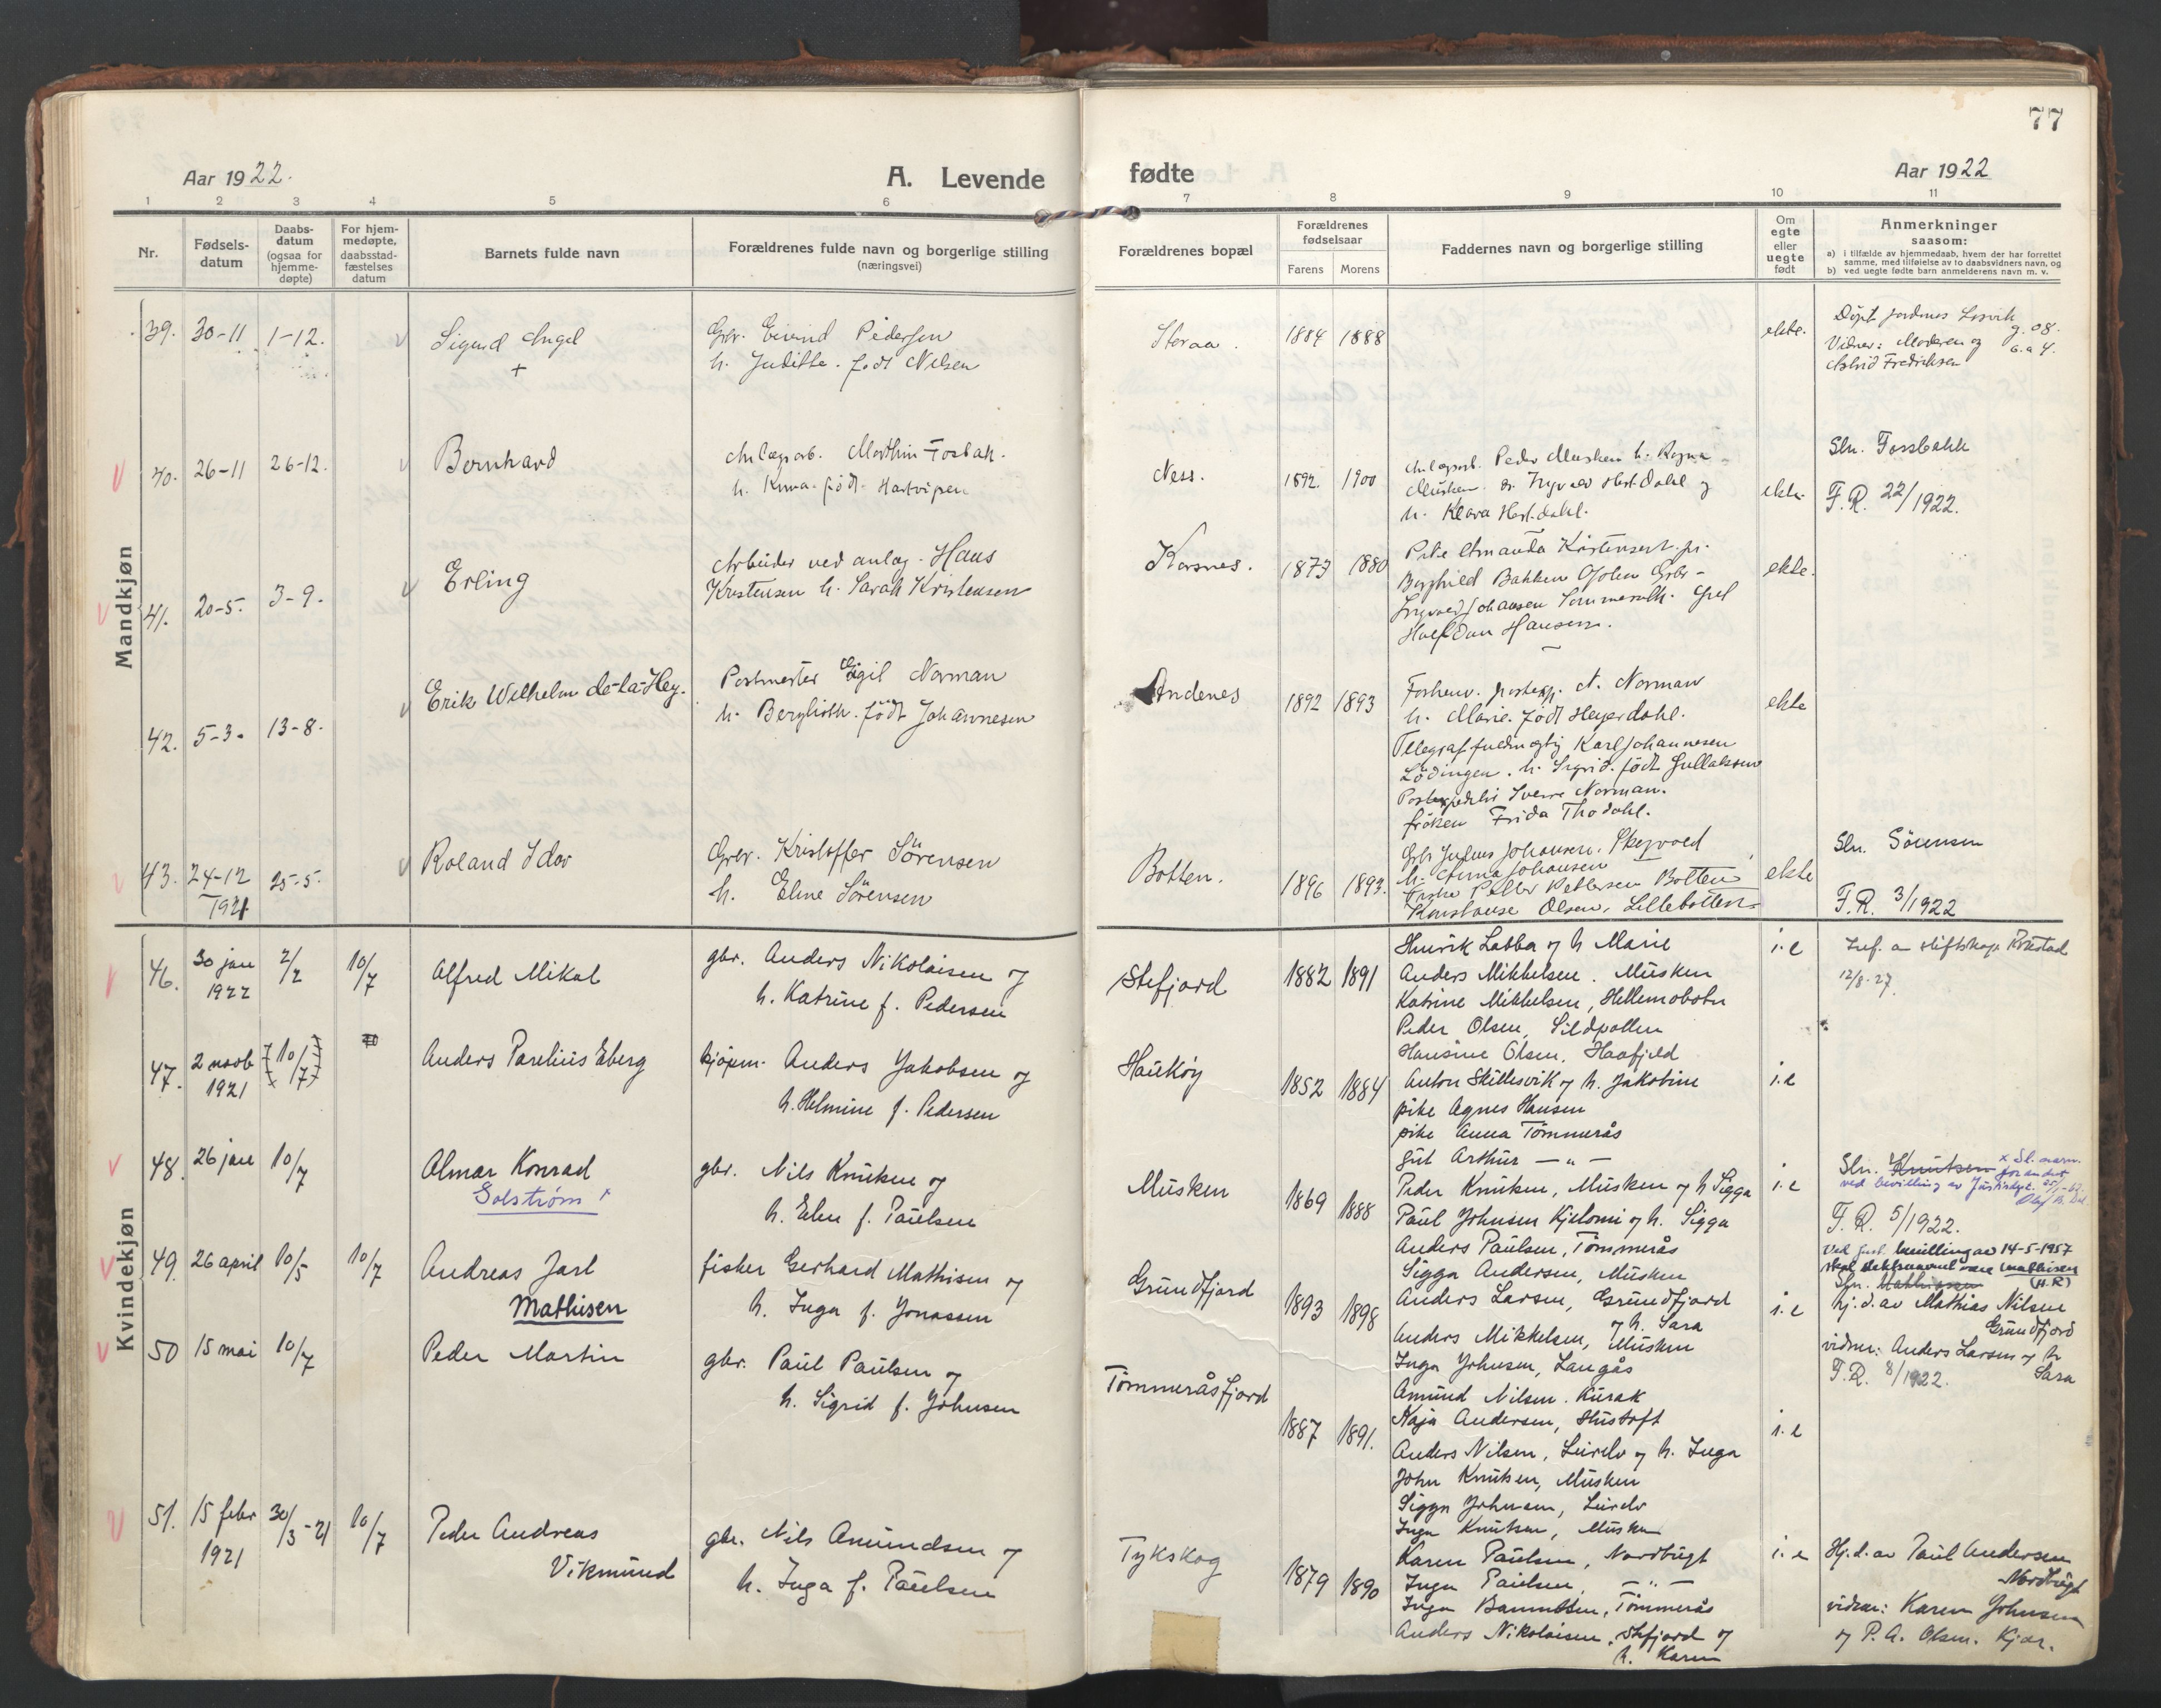 77
Aar 1922.
A. Levende
fødte
Aar 1922
1 2 3 4 5 6 7 8 9 10 11
Nr.
Fødsels-
datum
Daabs-
datum
(ogsaa for
hjemme-
døpte)
For hjem-
medøpte,
daabsstad-
fæstelses
datum
Barnets fulde navn
Forældrenes fulde navn og borgerlige stilling
(næringsvei)
Forældrenes bopæl
Forældrenes
fødselsaar
Farens Morens
Faddernes navn og borgerlige stilling
Om
egte
eller
uegte
født
Anmerkninger
saasom:
a) i tilfælde av hjemmedaab, hvem der har forrettet
samme, med tilføielse av to daabsvidners navn, og
b) ved uegte fødte barn anmelderens navn m. v.
Mandkjøn
39. 30-11 1-12. Sigurd Angel
+
Gbr. Eivind Pedersen
h. Judithe. født Nilsen
Storaa. 1884 1888
ekte.
Döpt jordmor Lesvik
Vidner: Moderen og
Astrid Fredriksen
g. 08.
6. a 4.
40. 26-11 26-12. Bernhard
Anlegsarb. Marthin Fosbak.
h. Kima. født. Hartvigsen
Ness. 1892. 1900
Anlegsarb. Peder Musken h. Ragna
Musken. Ingvald Hestdahl og
h. Klara Hestdahl.
ekte.
Sln. Fossbakk
F.R. 22/1922.
41. 20-5. 3-9. Erling
Arbeider ved anlæg. Hans
Kristensen h. Sarah Kristensen
Korsnes. 1873 1880
Pike Amanda Kristensen. pi.
Borghild Bakken Gbr.
Ingvald Johansen Sommerseth. Gut
Halfdan Hansen.
ekte.
42. 5-3. 13-8. Erik Wilhelm de-la-Hey.
Postmester Egil Norman
h. Berglioth. født Johannesen
Andenes 1892 1893
Forhenv. postexp. A. Norman
h. Marie. født Heyerdahl.
Telegraffuldmegtig Karl Johannesen
Lödingen. h. Sigrid. født Gullaksen
Postexpeditör Sverre Norman.
fröken Frida Thodahl.
ekte
43. 24-12
1921
25-5. Roland Idar
Gbr. Kristoffer Sörensen
h. Eline Sörensen
Botten. 1896 1893.
Gbr Julius Johansen. Skogvold
h. Anna Johansen
Peder Pettersen Botten
Konstanse Olsen, Lillebotten
ekte
Sln. Sörensen
F.R. 3/1922
Kvindekjøn
46. 30 jan
1922
2/2 10/7 Alfred Mikal
gbr. Anders Nikolaisen og
h. Katrine f. Pedersen
Stefjord 1882 1891
Henrik Labba og h Marie
Anders Mikkelsen. Musken
Katrine Mikkelsen, Hellemobotn
Peder Olsen, Sildpollen
Hansine Olsen, Haafjeld
i. e
Inf. av stiftskap. Krustad
12/8-27.
47. 2 novb
1921
10/7 Anders Parelius Eberg
kjöpm. Anders Jakobsen og
h. Helmine f. Pedersen
Hauköy 1852 1884
Anton Skillesvik og h. Jakobine
pike Agnes Hansen
pike Anna Tömmerås
gut Arthur — " —
i. e
48. 26 jan 10/7 Almar Konrad
Solström x
gbr. Nils Knutsen og
h. Elen f. Paulsen
Musken 1869 1888
Peder Knutsen, Musken og h Sigga
Paul Johnsen Kjelomi og h. Sigga
Anders Paulsen, Tömmerås
Sigga Andersen, Musken
i. e
Sln. Knutsen x Sl. navn
forandret
ved bevilling av Justisdept.
F.R. 5/1922.
49. 26 april 10/5 10/7 Andreas Jarl
Mathisen
fisker Gerhard Mathisen og
h. Inga f. Jonassen
Grundfjord 1893 1898
Anders Larsen, Grundfjord
og h. Sara
Anders Mikkelsen, Musken
Inga Johnsen, Langås
Amund Nilsen. Kurak
i. e
Ved just. bevilling av 14-5-1957
skal slektsnavnet være Mathisen
(H.R)
Sln. Mathiassen
hj. d. av Mathias Nilsen
Grundfjord
vidner: Anders Larsen og h
Sara
F.R. 8/1922.
50 15 mai 10/7 Peder Martin
gbr. Paul Paulsen og
h. Sigrid f. Johnsen
Tömmeråsfjord 1887 1891.
Kaja Andersen, Hustoft
Anders Nilsen, Leirelv og h. Inga
John Knutsen, Musken
Sigga Johnsen, Leirelv
Inga Knutsen, Musken
i. e
51. 15 febr
1921
30/3-21 10/7 Peder Andreas
Vikmund
gbr. Nils Amundsen og
h. Inga f. Paulsen
Tykskog 1879 1890
Karen Paulsen, Nordbugt
Inga Paulsen, — " —
Inga Tömmerås
Anders Nikolaisen, Stefjord og
h. Karen
i. e
Hj. d. av Paul Andersen
Nordbugt
vidner: Karen Johnsen
og P. A. Olsen. Kjær.